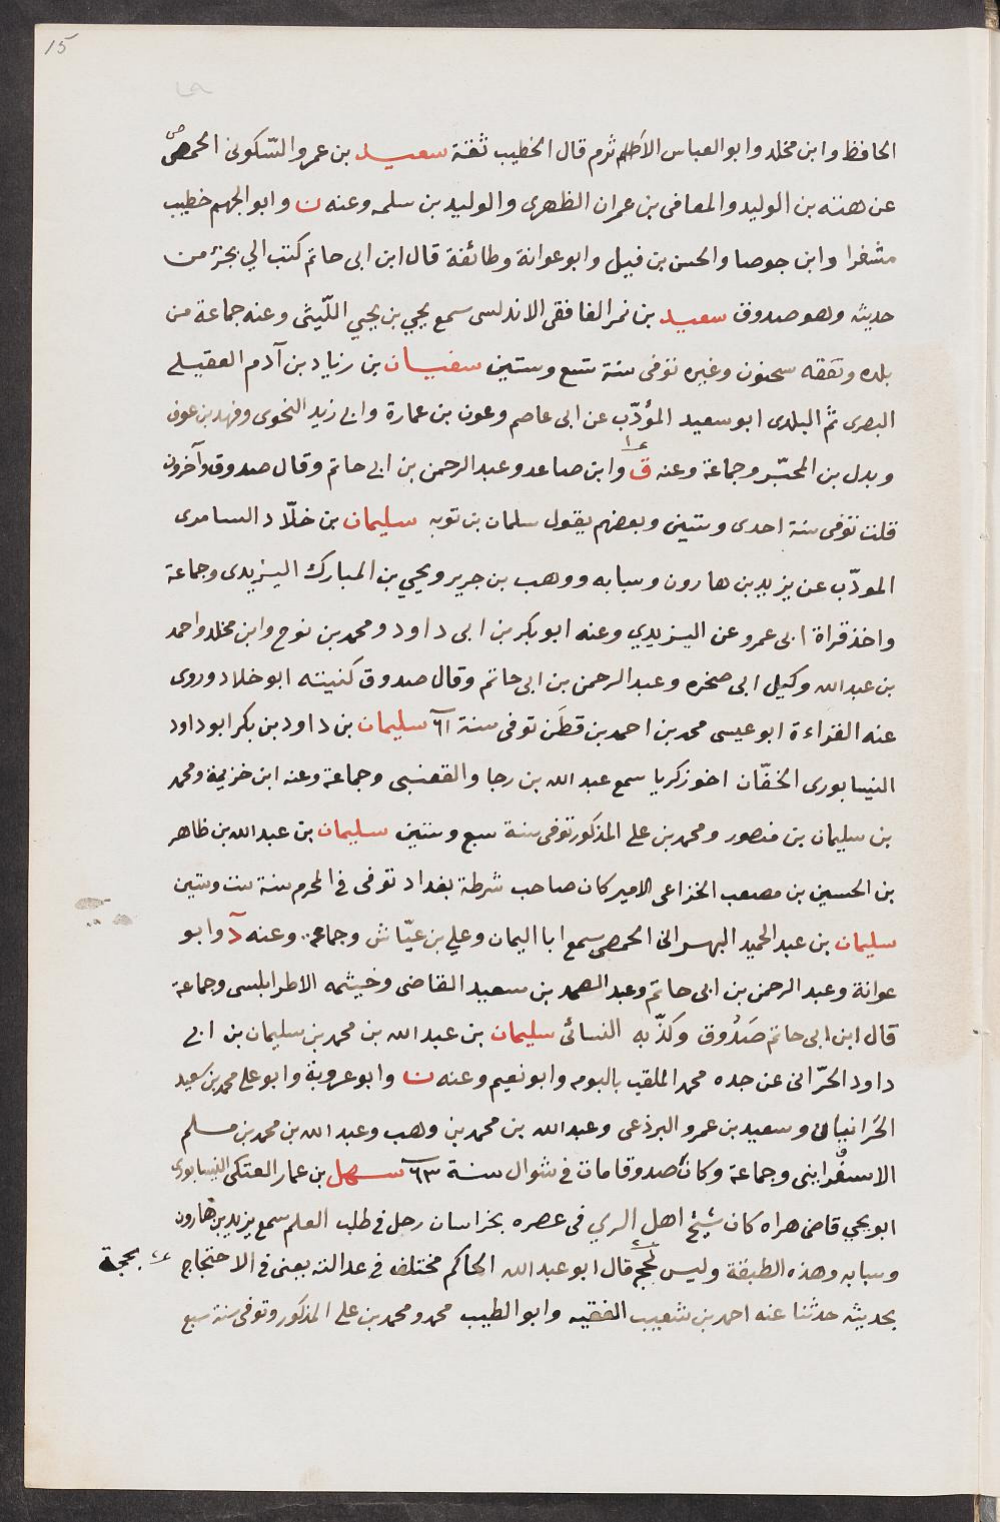 15
الحافظ وابن مخلد وابو العباس الاثرم قال الخطيب ثقة سعيد بن عمرو السّكونى الحمصى
عن هنته بن الوليد والمعافى بن عمران الظهرى والوليد بن سلمه وعنه ن وابو الجهم خطيب
مشغرا وابن جوصا والحسن بن فيل وابو عوانة وطائفة قال ابن ابى حاتم كتب الي بجزء من
حديثه وهو صدوق سعيد بن نمر الغافقى الاندلسى سمع يحيي بن يحيي اللّيثى وعنه جماعة من
بلده وتفقه سحنون وغيره توفى سنة تسع وستين سفيان بن زياد بن آدم العقيلے
البصرى ثمّ البلدى ابو سعيد المؤدّب عن ابى عاصم وعون بن عمارة وابے زيد النحوى وفهد بن عوف
وبدل بن المحبّر وجماعة وعنه ق وابن صاعد وعبد الرحمن بن ابے حاتم وقال صدوق وآخرون
قلت توفى سنة احدى وستين وبعضهم يقول سلمان بن توبه سليمان بن خلّاد السامرى
المودّب عن يزيد بن هارون وسبابه ووهب بن جرير ويحيي بن المبارك اليزيدى وجماعة
واخذ قراة ابى عمرو عن اليزيدي وعنه ابو بكر بن ابى داود ومحمد بن نوح وابن مخلد واحمد
بن عبد الله وكيل ابى صخره وعبد الرحمن بن ابى حاتم وقال صدوق كنيته ابو خلاد وروى
عنه القراءة ابو عيسى محمد بن احمد بن قطَن توفى سنة ٦١ سليمان بن داود بن بكر ابو داود
النيسابورى الخفّان اخو زكريا سمع عبد الله بن رجا والقعنبى وجماعة وعنه ابن خزيمة ومحمد
بن سليمان بن منصور ومحمد بن على المذكور توفى سنة سبع وستين سليمان بن عبد الله بن طاهر
بن الحسين بن مصعب الخزاعى الامير كان صاحب شرطة بغداد توفى فى المحرم سنة ست وستين
سليمان بن عبد الحميد البهرانى الحمصى سمع ابا اليمان وعلي بن عيّاش وجماعة وعنه د وابو
عوانة وعبد الرحمن بن ابى حاتم وعبد الصمد بن سعيد القاضى وخيثمه الاطرابلسى وجماعة
قال ابن ابى حاتم صَدُوق وكذّبه النسائى سليمان بن عبد الله بن محمد بن سليمان بن ابے
داود الحرّانى عن جده محمد الملقب بالبومه وابو نعيم وعنه ن وابو عروبة وابو على محمد بن سعيد
الحَرانيانى وسعيد بن عمرو البرذعى وعبد الله بن محمد بن وهب وعبد الله بن محمد بن مسلم
الاسفُراينى وجماعة وكان صدوقا مات فى شوال سنة ٦٣ سهل بن عمار العتكى النيسابورى
ابو يحيي قاضى هراه كان شيخ اهل الري فى عصره بخراسان رحل فى طلب العلم سمع يزيد بن هارون
وسبابه وهذه الطبقة وليس بحجة قال ابو عبد الله الحاكم مختلف فى عدالته يعنى فى الاحتجاج بحجة
بحديثه حدثنا عنه احمد بن شعيب الفقيه وابو الطيب محمد ومحمد بن على المذكور وتوفى سنة سبع